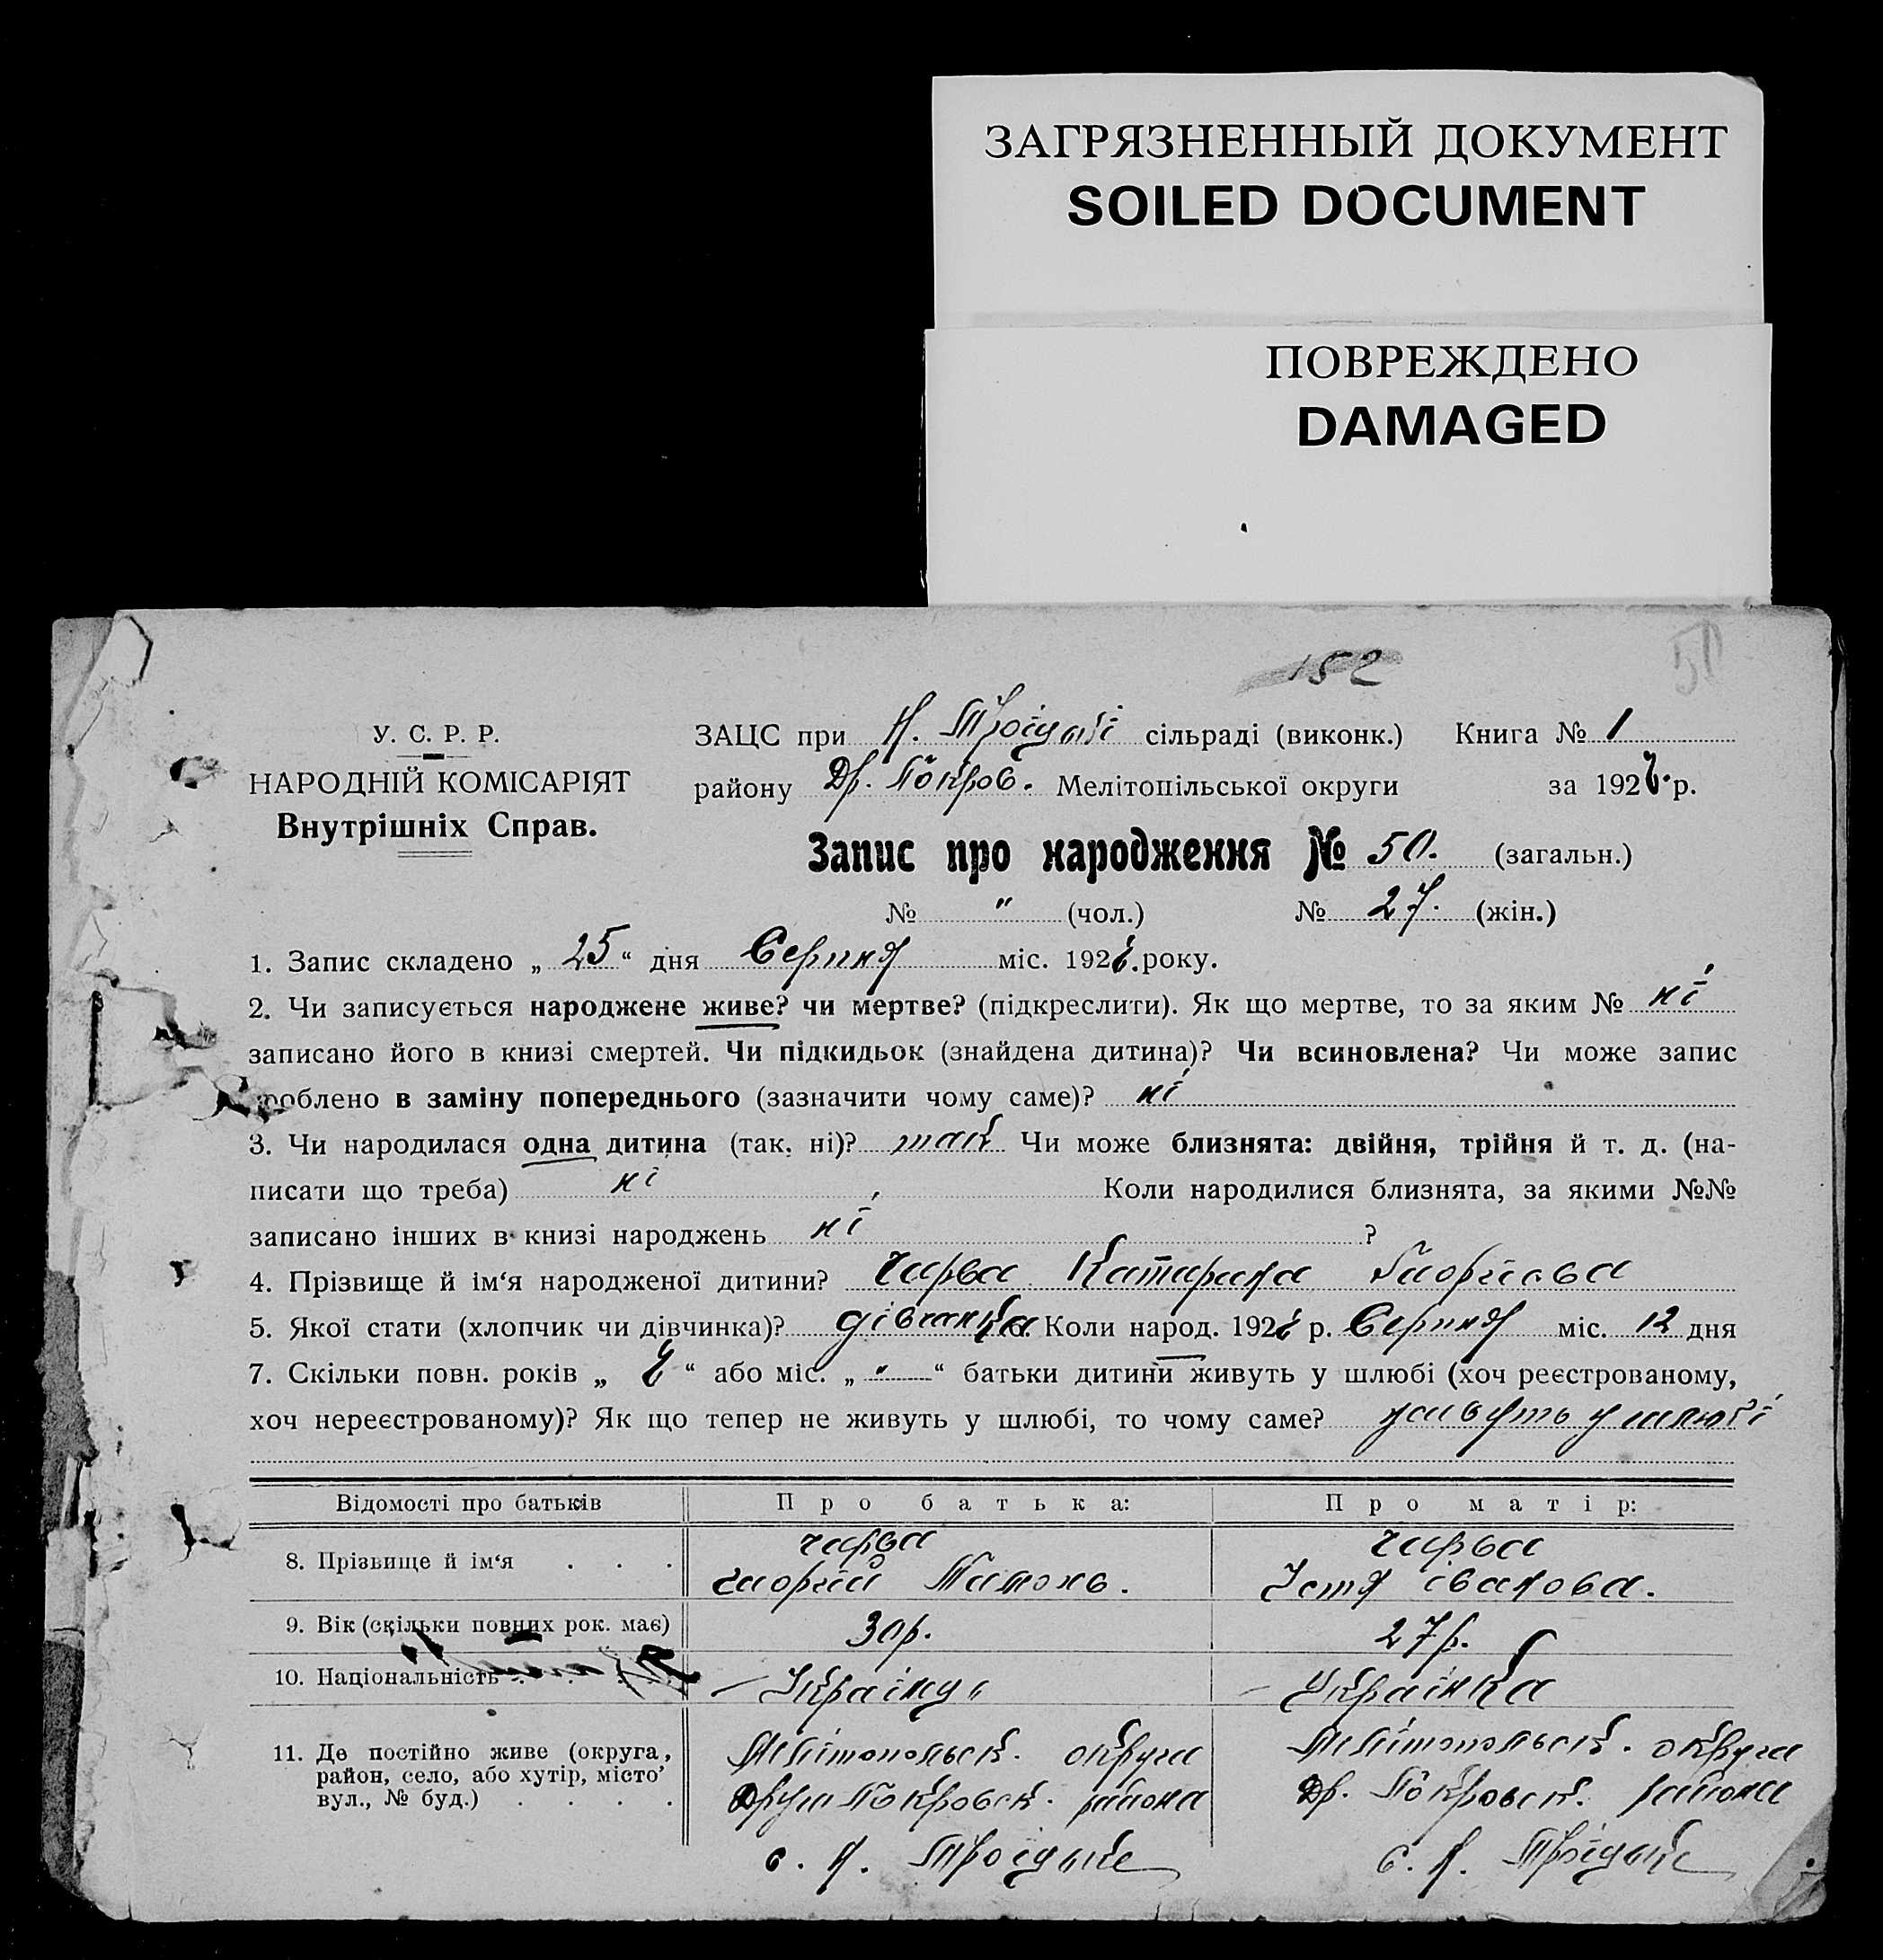 ЗАГРЯЗНЕННЫЙ ДОКУМЕНТ
SOILED DOCUMENT
ПОВРЕЖДЕНО
DAMAGED
152
У. С. Р. Р.
НАРОДНІЙ КОМІСАРІЯТ
Внутрішніх Справ.
ЗАЦС при Н. сільраді (виконк.) Книга № 1
району Др. Покров. Мелітопільської округи за 192 р.
Запис про народження № 50. (загальн.)
№ " (чол.) № 27. (жін.)
1. Запис складено „ 25 “ дня Серпня міс. 192 року.
2. Чи записується народжене живе? чи мертве? (підкреслити). Як що мертве, то за яким № ні
записано його в книзі смертей. Чи підкидьок (знайдена дитина)? Чи всиновлена? Чи може запис
роблено в заміну попереднього (зазначити чому саме)? ні
3. Чи народилася одна дитина (так, ні)? так Чи може близнята: двійня, трійня й т. д. (на-
писати що треба) ні Коли народилися близнята, за якими №№
записано інших в книзі народжень ні ?
4. Прізвище й ім‘я народженої дитини? Катарина
5. Якої стати (хлопчик чи дівчинка)? дівчинка Коли народ. 192 р. Серпня міс. 12 дня
7. Скільки повн. років „ “ або міс. „ " “ батьки дитини живуть у шлюбі (хоч реєстрованому,
хоч нереєстрованому)? Як що тепер не живуть у шлюбі, то чому саме? живуть у шлюбі
Відомості про батьків Про батька: Про матір:
8. Прізвище й ім‘я . . .
Івахова.
9. Вік (скільки повних рок. має) 30 р. 27 р.
10. Національність . . . — Україн — Українка
11. Де постійно живе (округа, Мелітопольськ. округа Мелітопольськ. округа
район, село, або хутір, місто’ Покровськ. района Др. Покровськ. района
вул., № буд.) . . . .
с. Н. с. Н.